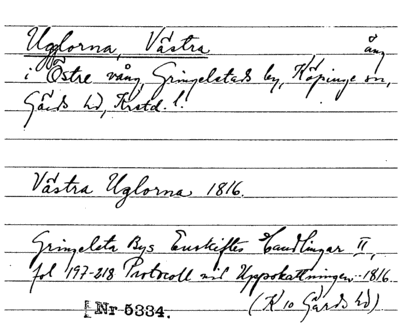 Uglorna, Västra äng
i Östre vång, Gringelstads by, Köpinge sn,
Gärds hd, Krstd. l.
Västra Uglorna 1816.
Gringelsta Bys Enskiftes Handlingar II,
fol 197-218 Protocoll vid Uppskattningen 1816
(K 10 Gärds hd)
Nr 5334.